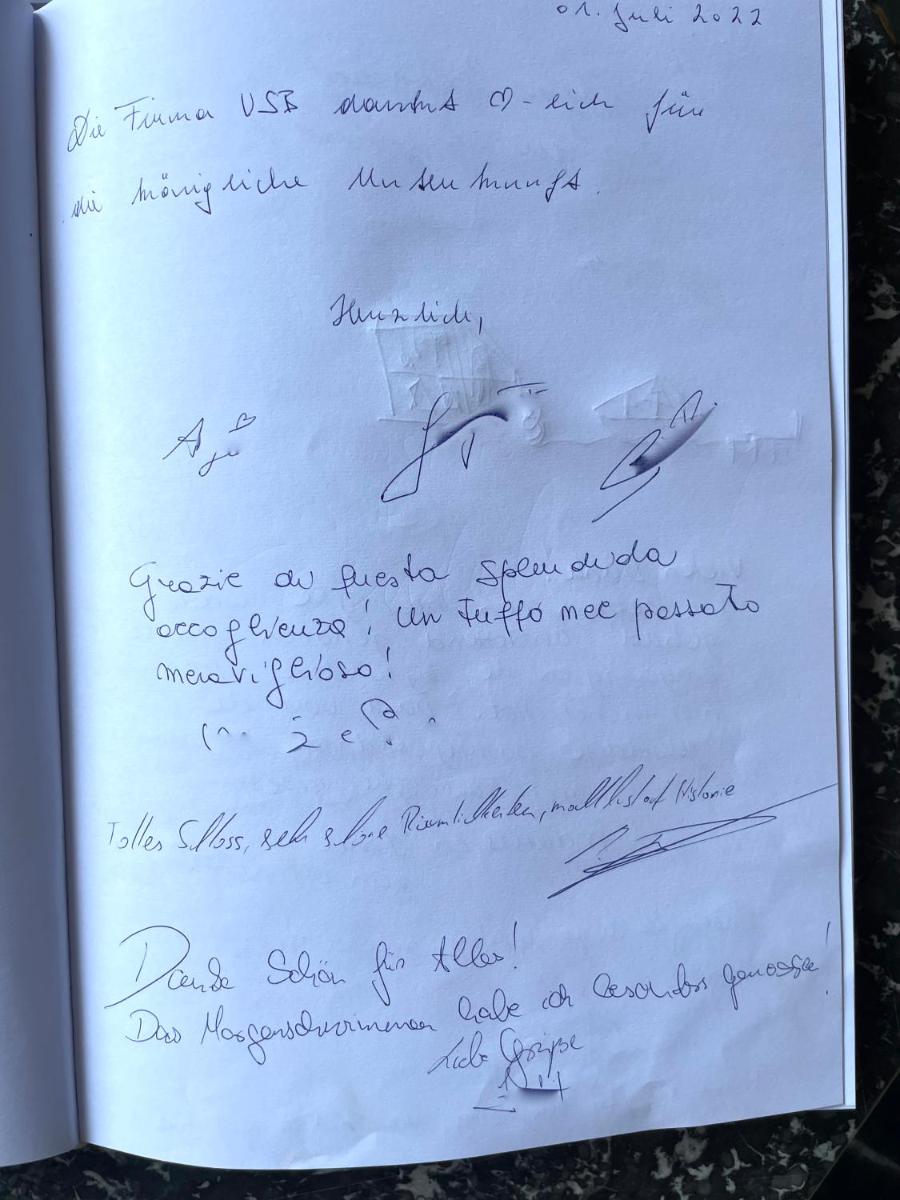 01. Juli 2022
Die Firma VSB dankt ♡-lich für
die königliche Unterkunft.
Herzlich,
Grazie di questa splendida
accoglienza! Un tuffo nel passato
meraviglioso!
Tolles Schloss, sehr schöne Räumlichkeiten, macht lust auf Historie
Danke Schön für Alles!
Das Morgenschwimmen habe ich besonders genossen!
Liebe Grüsse